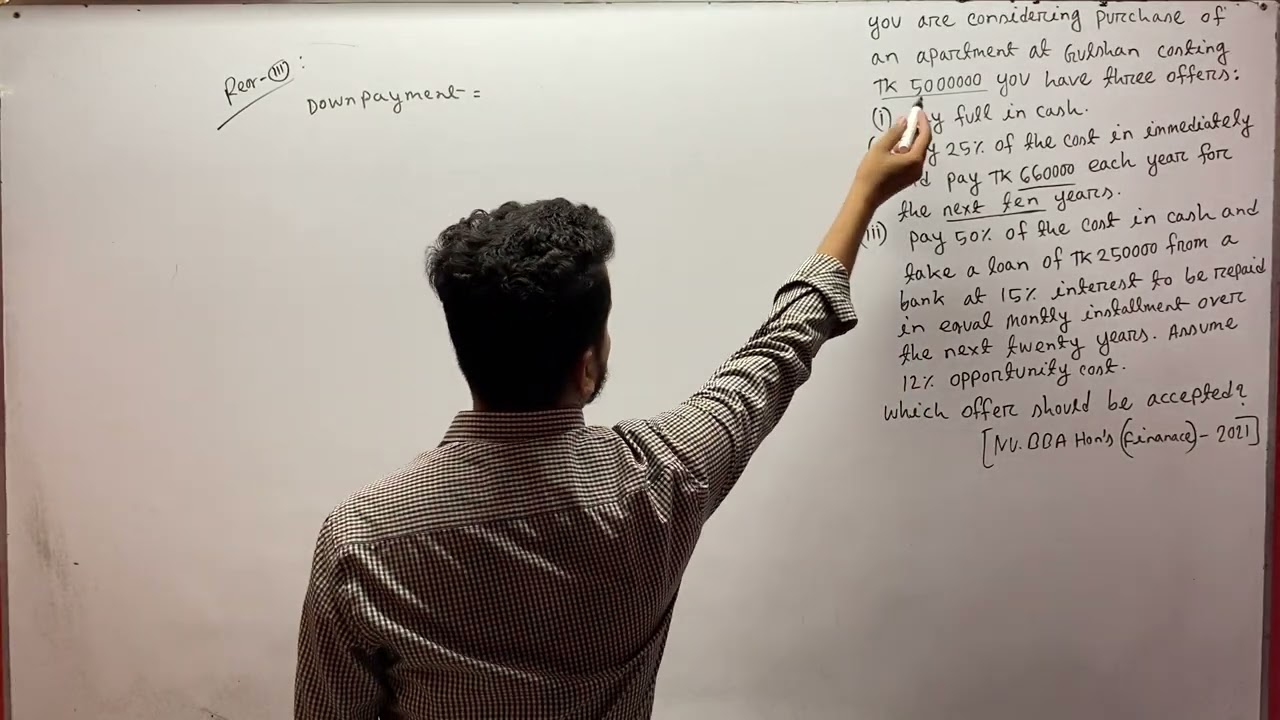 Reor-(III) :
Downpayment =
you are considering purchase of
an apartment at Gulshan costing
TK 5000000 you have three offers:
(i) full in cash.
25% of the cost in immediately
pay TK 660000 each year for
the next ten years.
pay 50% of the cost in cash and
take a loan of TK 250000 from a
bank at 15% interest to be repaid
in equal montly installment over
the next twenty years. Assume
12% opportunity cost.
which offer should be accepted?
[NU. BBA Hon's (Finanace) - 2021]